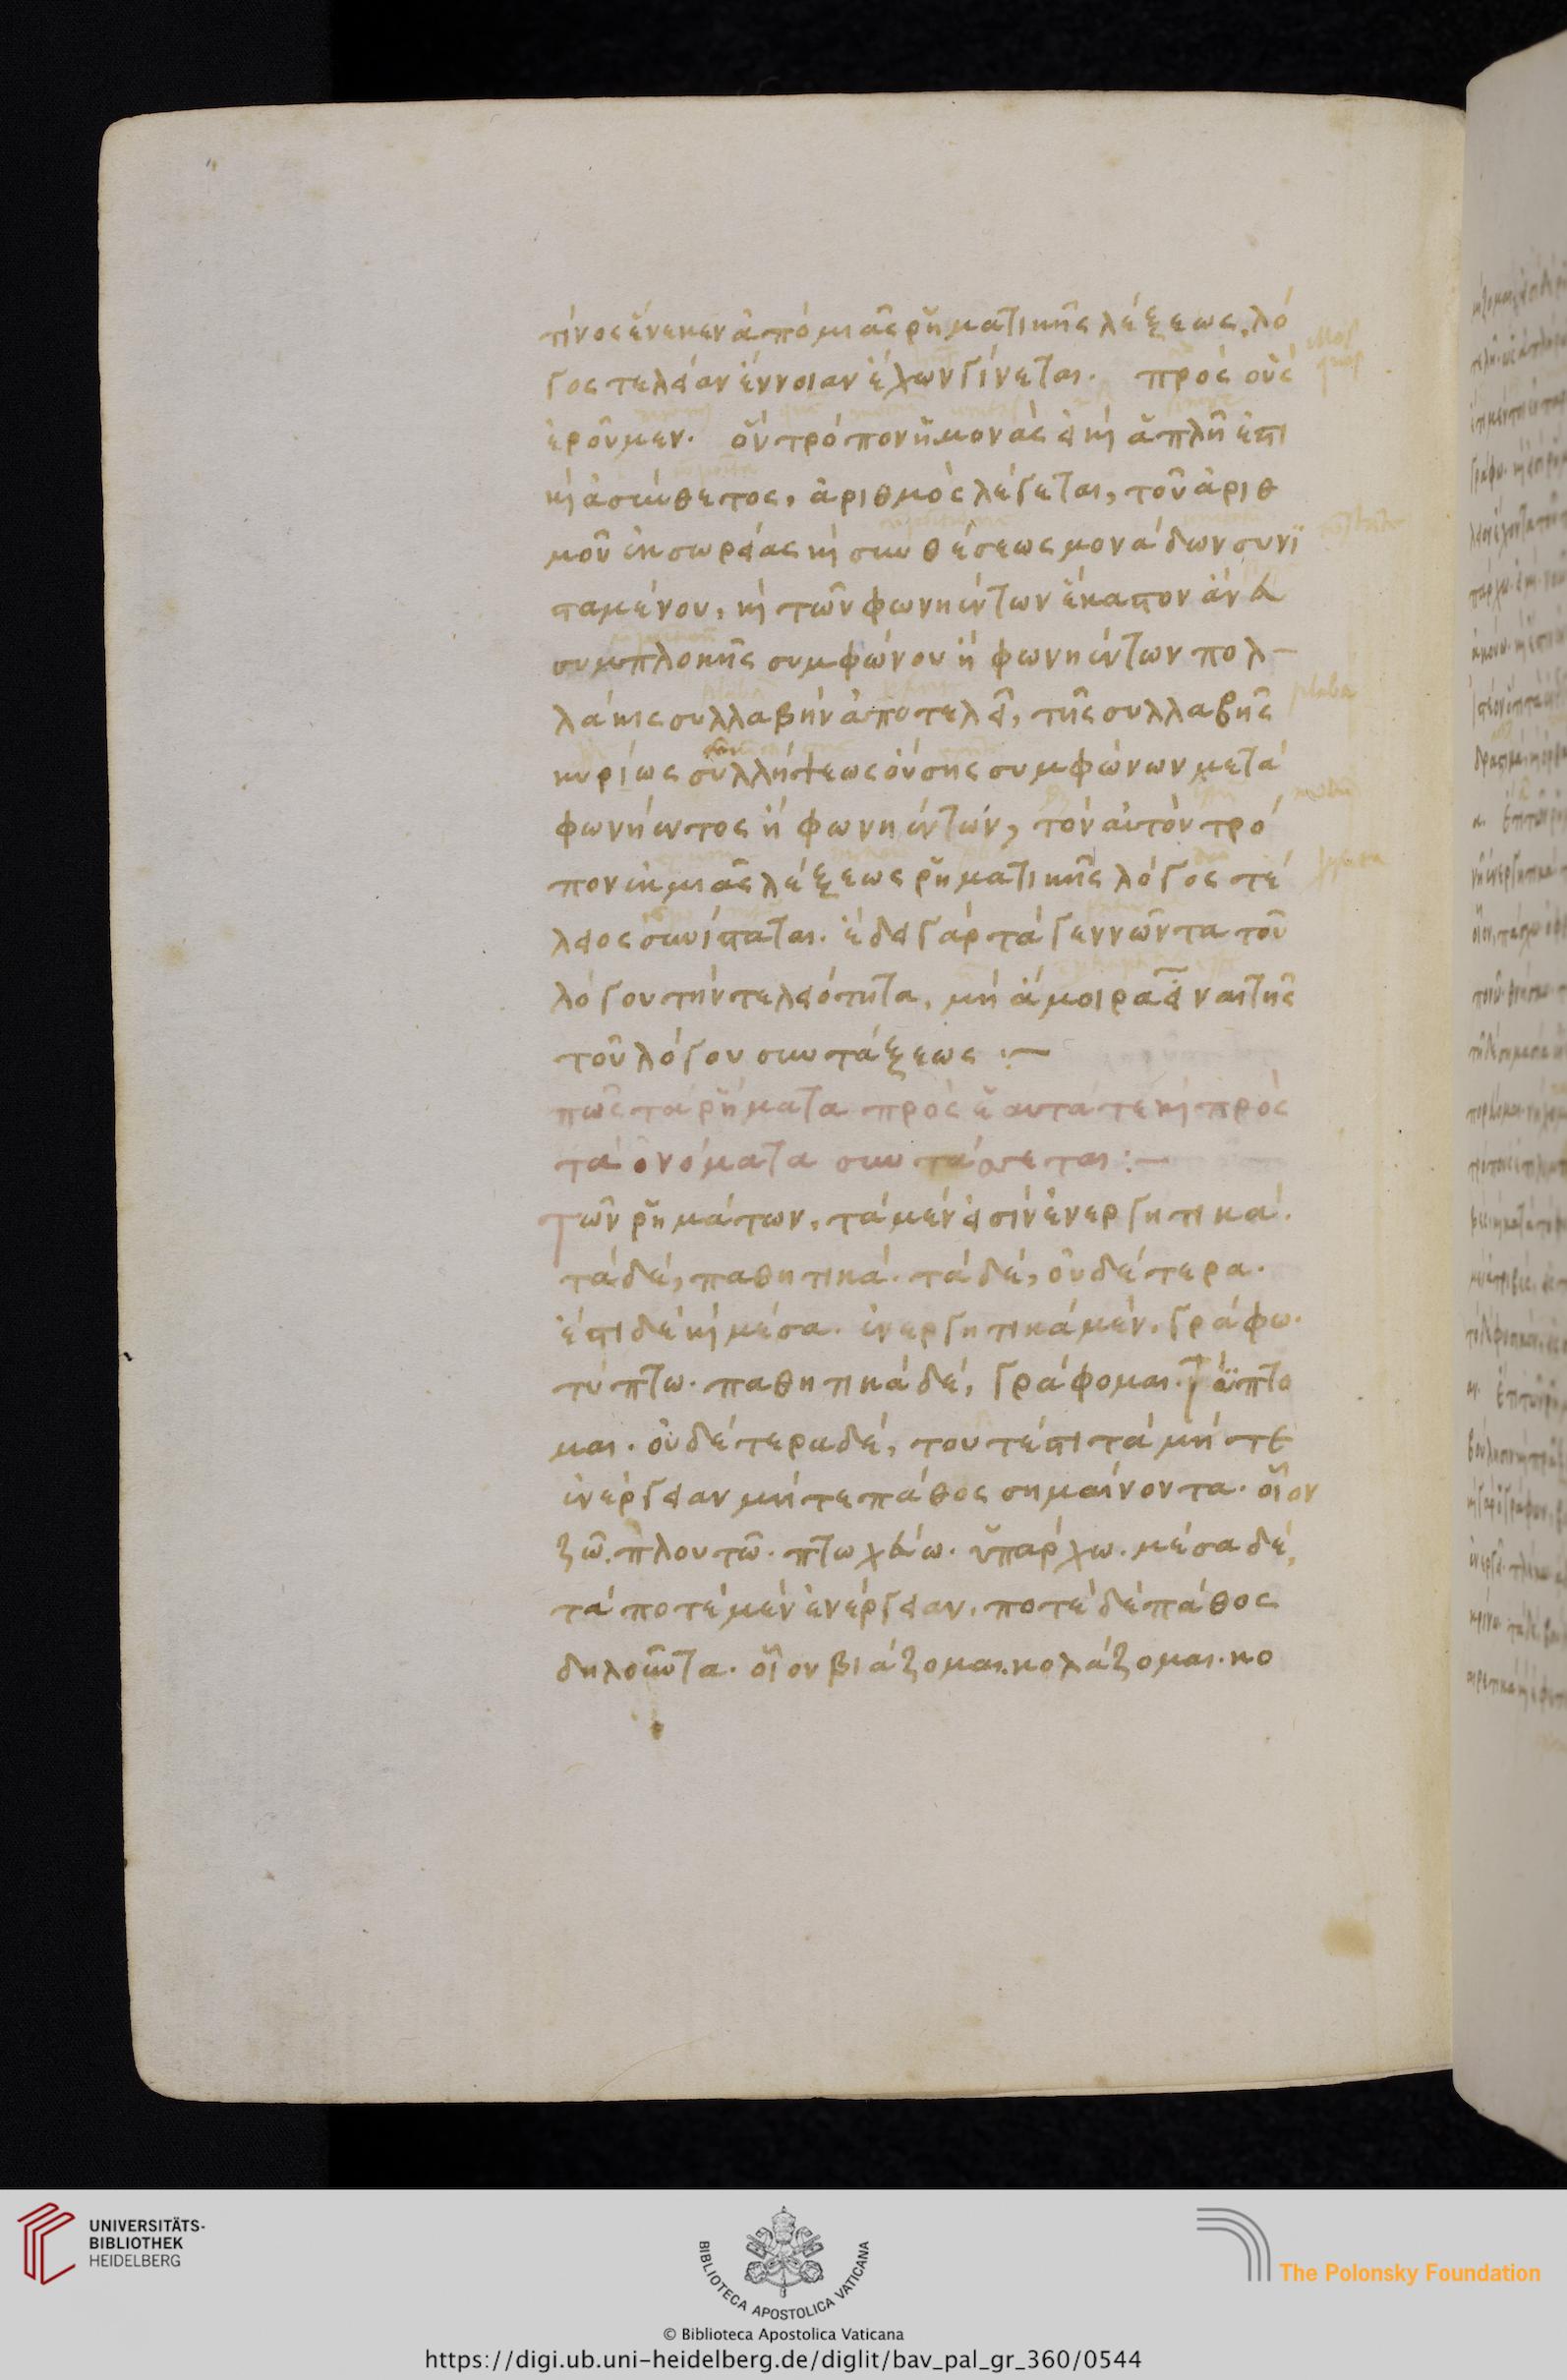 τίνος ἕνεκεν ἀπὸ μιᾶς ῥηματικῆς λέξεως, λό
γος τελείαν ἔννοιαν ἔχων γίνεται. πρὸς οὓς
ἐροῦμεν. ὃν τρόπον ἡ μονὰς εἰ καὶ ἁπλῆ ἐστι
καὶ ἀσύνθετος, ἀριθμὸς λέγεται, τοῦ ἀριθ
μοῦ ἐκ σωρείας καὶ συνθέσεως μονάδων συνϊ
σταμένου, καὶ τῶν φωνηέντων ἕκαστον ἄνευ
συμπλοκῆς συμφώνου ἢ φωνηέντων πολ-
λάκις συλλαβὴν ἀποτελεῖ, τῆς συλλαβῆς
κυρίως συλλήψεως οὔσης συμφώνων μετὰ
φωνήεντος ἢ φωνηέντων, τὸν αὐτὸν τρό
πον ἐκ μιᾶς λέξεως ῥηματικῆς λόγος τέ
λειος συνίσταται. ἔδει γὰρ τὰ γεννῶντα τοῦ
λόγου τὴν τελειότητα, μὴ ἄμοιρα εἶναι τῆς
τοῦ λόγου συντάξεως :—
πῶς τὰ ῥήματα πρὸς ἑαυτά τε καὶ πρὸς
τὰ ὀνόματα συντάσσεται :—
Τῶν ῥημάτων, τὰ μέν εἰσιν ἐνεργητικά.
τὰ δὲ, παθητικά. τὰ δὲ, οὐδέτερα.
ἔστι δὲ καὶ μέσα. ἐνεργητικὰ μὲν, γράφω.
τύπτω. παθητικὰ δὲ, γράφομαι. τύπτο
μαι. οὐδέτερα δὲ, τουτέστι τὰ μήτε
ἐνέργειαν μήτε πάθος σημαίνοντα. οἷον
ζῶ. πλουτῶ. πτωχεύω. ὑπάρχω. μέσα δὲ,
τὰ ποτὲ μὲν ἐνέργειαν, ποτὲ δὲ πάθος
δηλοῦντα. οἷον βιάζομαι. κολάζομαι. κο
UNIVERSITÄTS-
BIBLIOTHEK
HEIDELBERG
BIBLIOTECA APOSTOLICA VATICANA
The Polonsky Foundation
© Biblioteca Apostolica Vaticana
https://digi.ub.uni-heidelberg.de/diglit/bav_pal_gr_360/0544